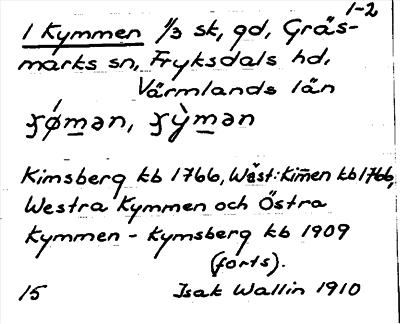 1-2
1 Kymmen 1/3 sk, gd, Gräs-
marks sn, Fryksdals hd,
Värmlands län
ꞩǿmən, ꞩỳmən
Kimsberg kb 1766, Wäst: Kim̄en kb 1766,
Westra Kymmen och Östra
Kymmen - Kymsberg kb 1909
(forts).
15 Isak Wallin 1910